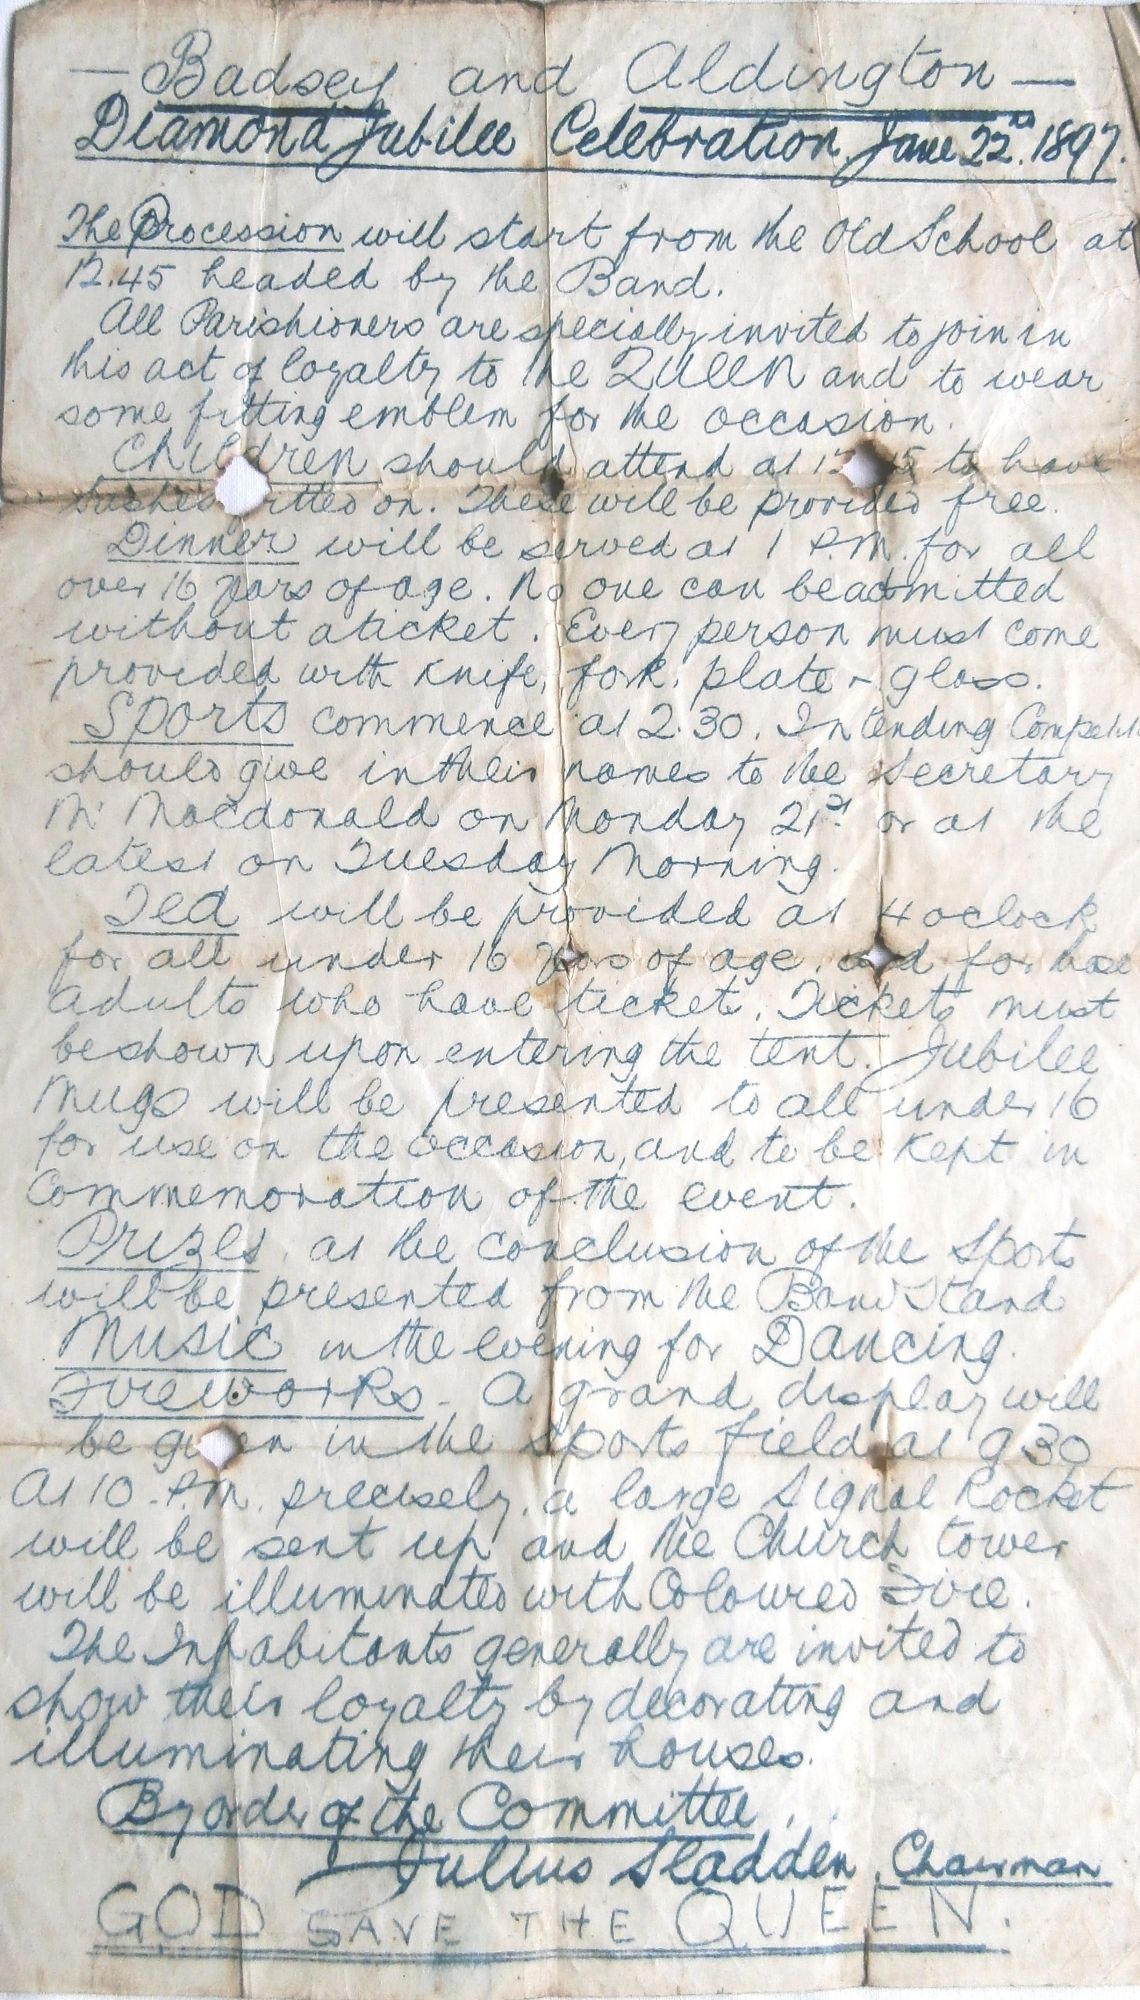 — Badsey and Aldington —
Diamond Jubilee Celebration June 22nd. 1897.
The Procession will start from the Old School at
12.45 headed by the Band.
All Parishioners are specially invited to join in
this act of loyalty to the QUEEN and to wear
some fitting emblem for the occasion.
Children should attend at to have
on. These will be provided free.
Dinner will be served at 1 P.M. for all
over 16 years of age. No one can be admitted
without a ticket. Every person must come
provided with knife, fork, plate & glass.
Sports commence at 2.30. Intending
should give in their names to the Secretary
Mr Macdonald on Monday 21st or at the
latest on Tuesday Morning.
Tea will be provided at 4 oclock
for all under 16 years of age. and for those
adults who have ticket. Tickets must
be shown upon entering the tent. Jubilee
Mugs will be presented to all under 16
for use on the occasion, and to be kept in
Commemoration of the event.
Prizes at the conclusion of the Sports
will be presented from the Band Stand
Music in the evening for Dancing.
Fireworks - A grand display will
be given in the Sports field at 9 30
At 10 P.M. precisely, a large Signal Rocket
will be sent up and the Church tower
will be illuminated with Coloured Fire.
The Inhabitants generally are invited to
show their loyalty by decorating and
illuminating their houses.
By order of the Committee
Julius Sladden. Chairman
GOD SAVE THE QUEEN.